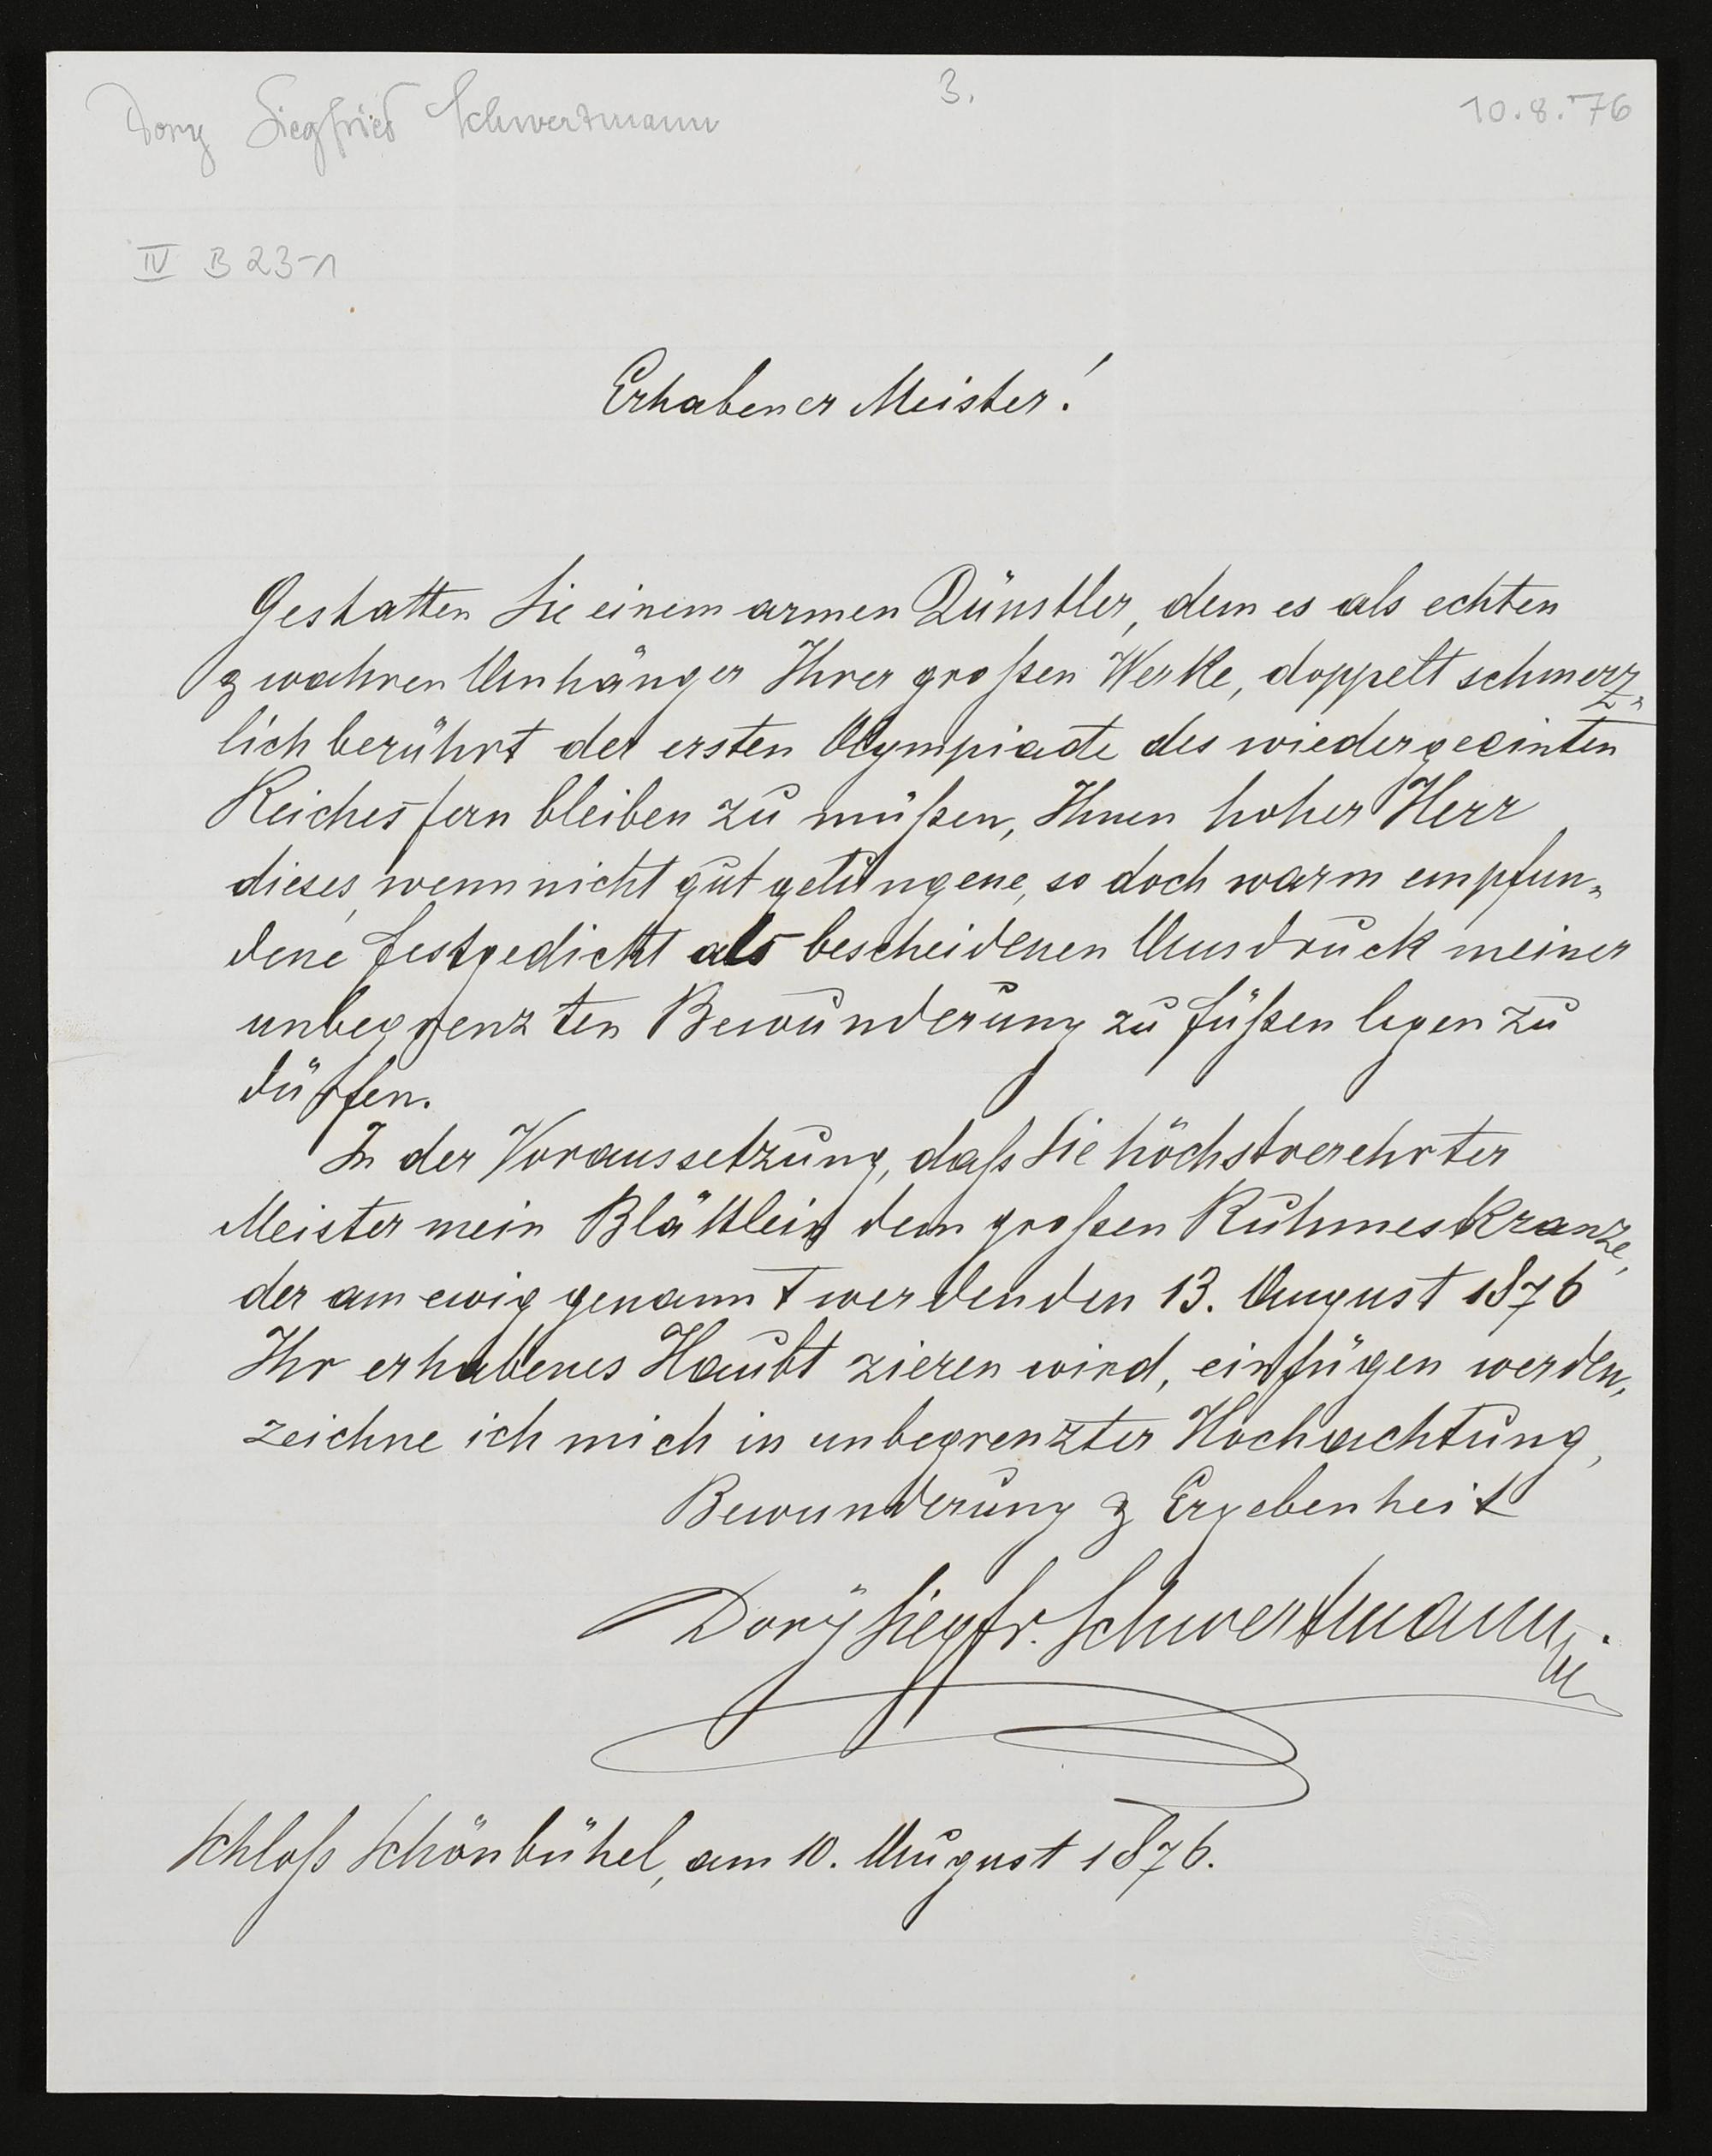 Dory Siegfried Schwertmann 3. 10.8.76
IV B 23-1
Erhabener Meister!
Gestatten Sie einem armen Künstler, dem es als echten
& wahren Anhänger Ihrer großen Werke, doppelt schmerz-
lich berührt der ersten Olympiade des wiedergeeinten
Reiches fern bleiben zu müßen, Ihnen hoher Herr
dieses, wenn nicht gut gelungene, so doch warm empfun-
dene Festgedicht als bescheidenen Ausdruck meiner
unbegrenzten Bewunderung zu Füßen legen zu
dürfen.
In der Voraussetzung, daß Sie höchstverehrter
Meister mein Blättlein dem großen Ruhmeskranze,
der am ewig genannt werdenden 13. August 1876
Ihr erhabenes Haubt zieren wird, einfügen werden,
zeichne ich mich in unbegrenzter Hochachtung,
Bewunderung & Ergebenheit
Dory Siegfr. Schwertmann.
Schloß Schönbühel, am 10. August 1876.